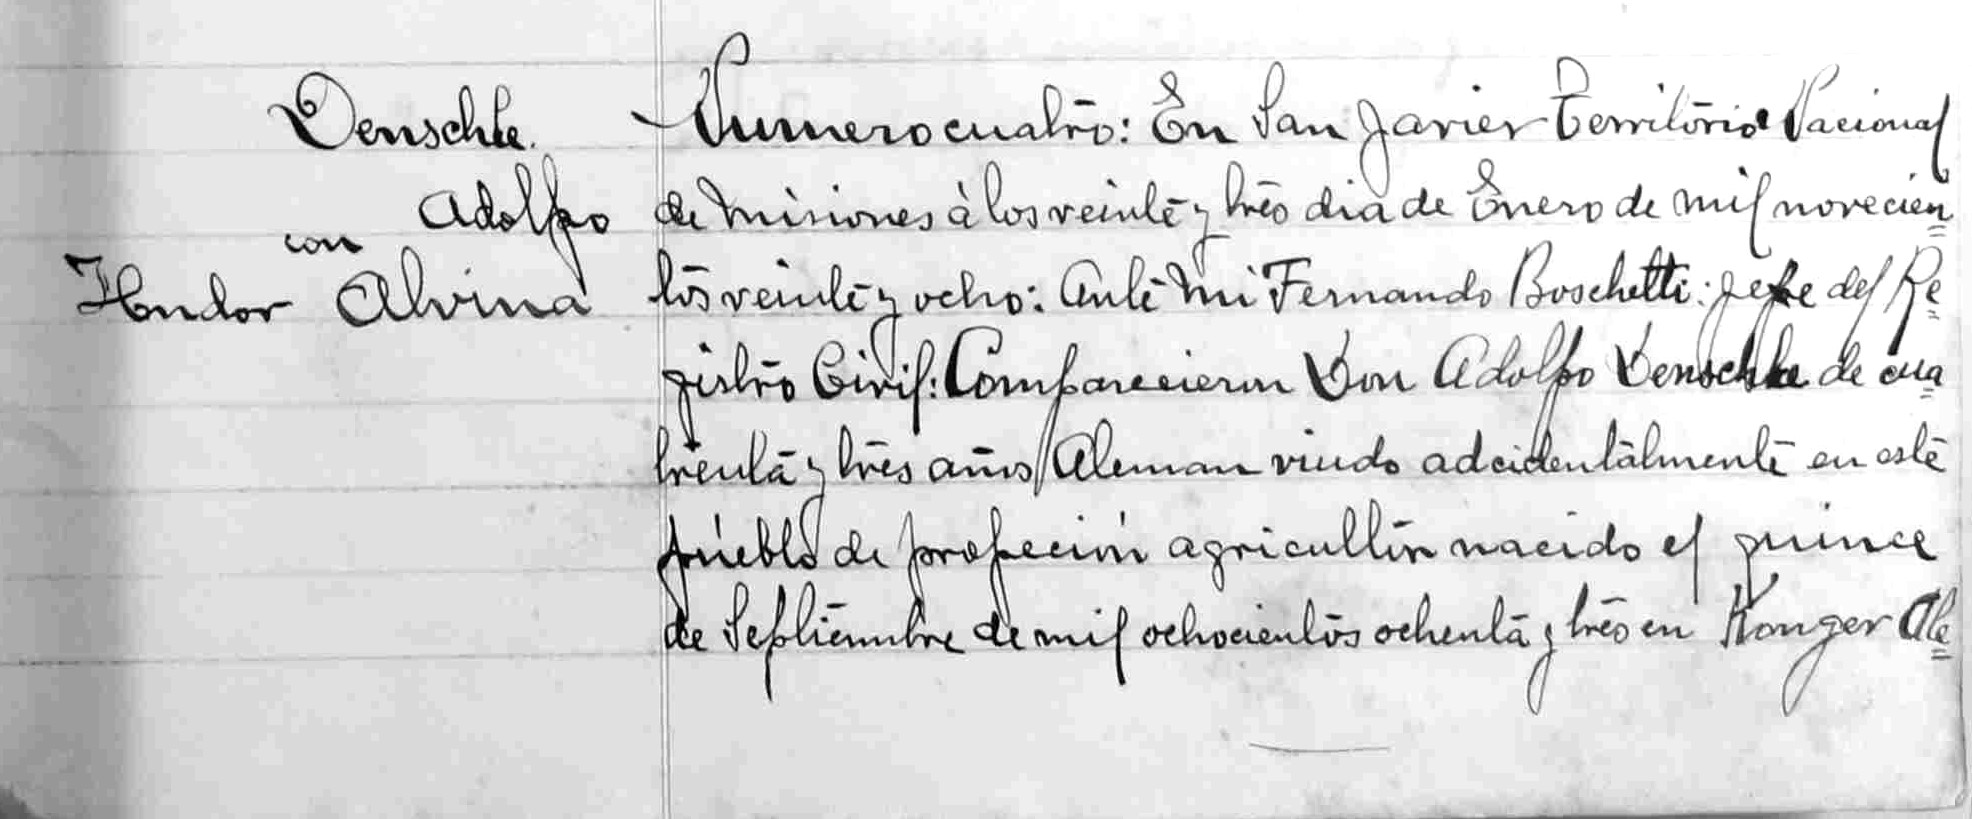 Denschke.
Adolfo
con
Hudor Alvina
Numero cuatro: En San Javier Territorio Nacional
de Misiones à los veinte y tres dia de Enero de mil novecien=
tos veinte y ocho: Ante mi Fernando Boschetti: Jefe del Re=
gistro Civil: Comparecieron Don Adolfo Denschke de cua=
trenta y tres años Aleman viudo adcidentalmente en este
pueblo de profecion agricultor nacido el quince
de Septiembre de mil ochocientos ochenta y tres en Konger Ale=